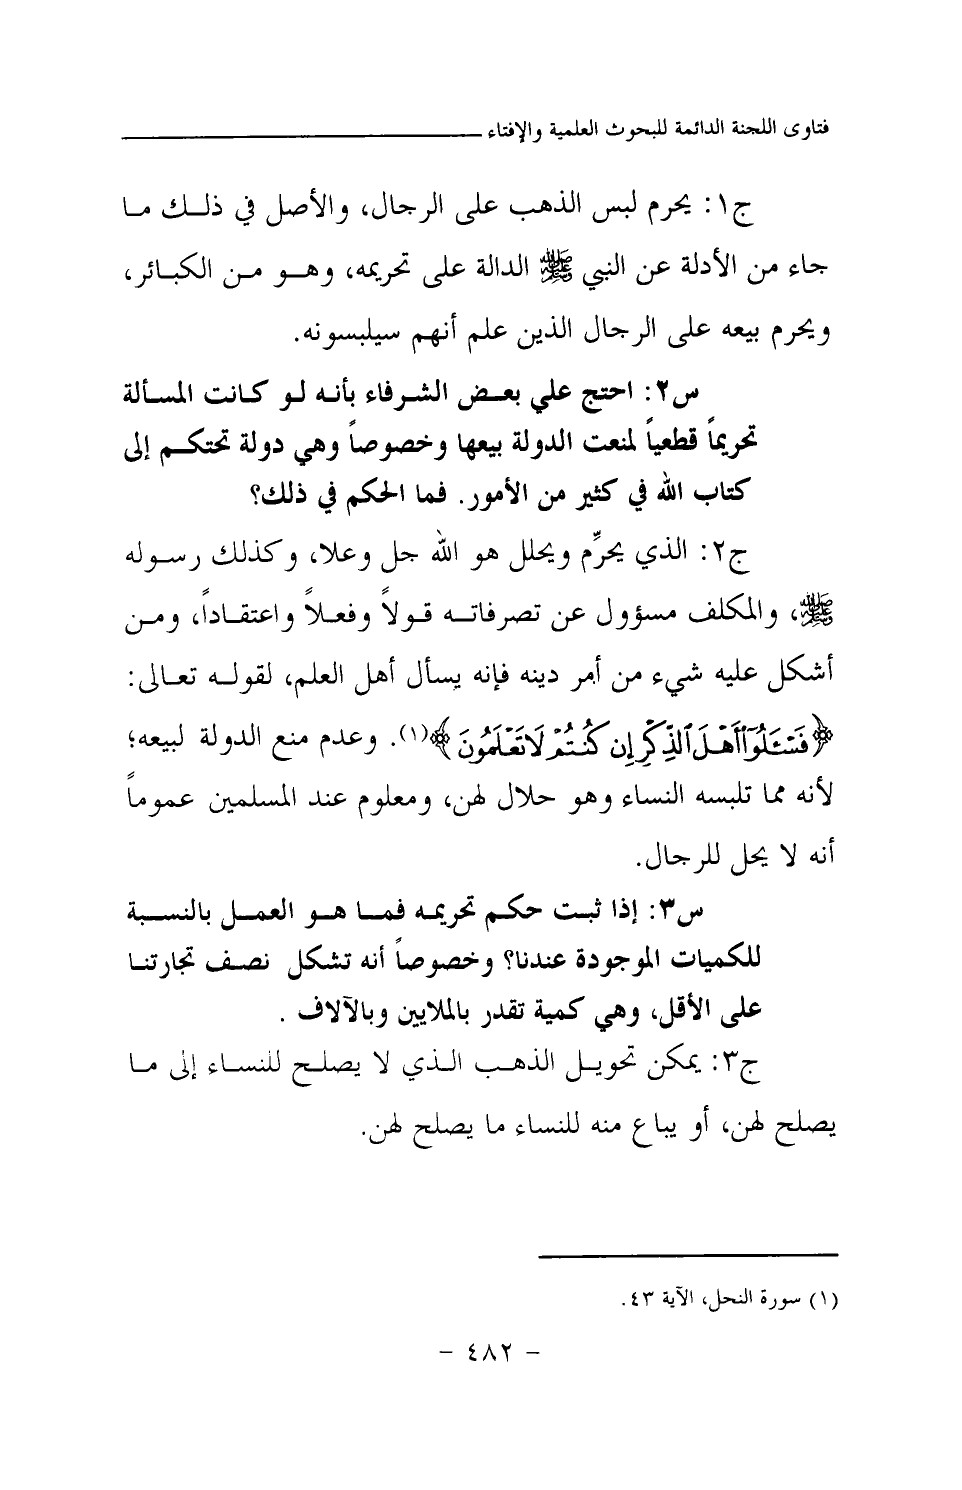 فتاوى اللجنة الدائمة للبحوث العلمية والإفتاء
ج١: يحرم لبس الذهب على الرجال، والأصل في ذلك ما
جاء من الأدلة عن النبي ﷺ الدالة على تحريمه، وهو من الكبائر،
ويحرم بيعه على الرجال الذين علم أنهم سيلبسونه.
س٢: احتج علي بعض الشرفاء بأنه لو كانت المسألة
تحريماً قطعياً لمنعت الدولة بيعها وخصوصاً وهي دولة تحتكم إلى
كتاب الله في كثير من الأمور. فما الحكم في ذلك؟
ج٢: الذي يحرِّم ويحلل هو الله جل وعلا، وكذلك رسوله
ﷺ، والمكلف مسؤول عن تصرفاته قولاً وفعلاً واعتقاداً، ومن
أشكل عليه شيء من أمر دينه فإنه يسأل أهل العلم، لقوله تعالى:
﴿فَسْـَٔلُوٓا۟ أَهْلَ ٱلذِّكْرِ إِن كُنتُمْ لَا تَعْلَمُونَ﴾(١). وعدم منع الدولة لبيعه؛
لأنه مما تلبسه النساء وهو حلال لهن، ومعلوم عند المسلمين عموماً
أنه لا يحل للرجال.
س٣: إذا ثبت حكم تحريمه فما هو العمل بالنسبة
للكميات الموجودة عندنا؟ وخصوصاً أنه تشكل نصف تجارتنا
على الأقل، وهي كمية تقدر بالملايين وبالآلاف .
ج٣: يمكن تحويل الذهب الذي لا يصلح للنساء إلى ما
يصلح لهن، أو يباع منه للنساء ما يصلح لهن.
(١) سورة النحل، الآية ٤٣.
- ٤٨٢ -